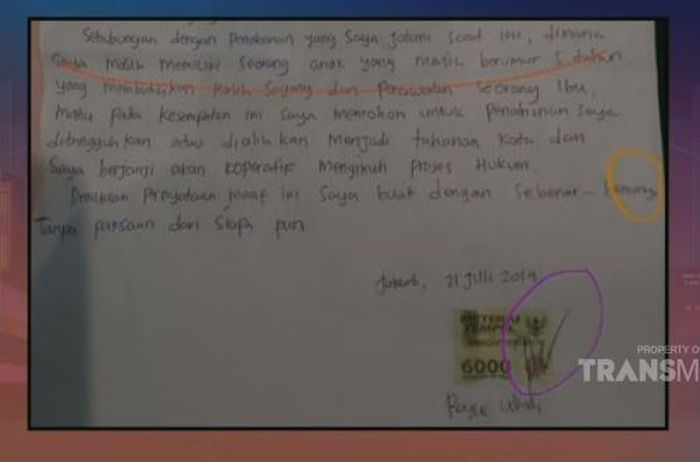 Sehubungan dengan Penahanan yang Saya Jalani Saat ini, dimana
Saya masih memiliki Seorang anak yang masih berumur 5 tahun
yang membutuhkan kasih Sayang dan Perawatan Seorang Ibu,
maka pada kesempatan ini Saya memohon untuk Penahanan Saya
ditangguhkan atau dialihkan Menjadi tahanan Kota dan
Saya berjanji akan Koperatif Mengikuti Proses Hukum.
Demikian Pernyataan maaf ini Saya buat dengan Sebenar-benarnya
Tanpa paksaan dari Siapa pun
Jakarta, 21 Juli 2019
METERAI
TEMPEL
6000
PROPERTY O
TRANSM